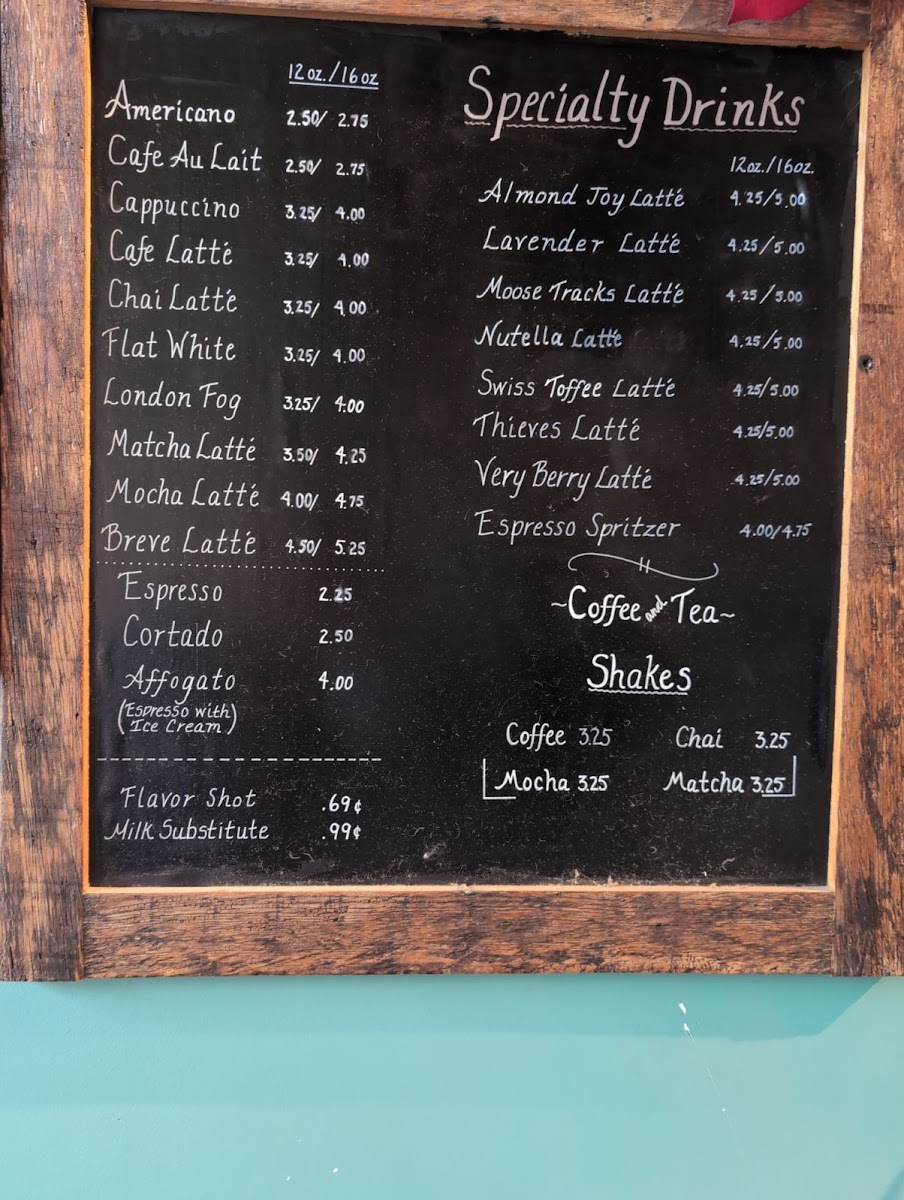 12 oz. / 16 oz
Americano 2.50/ 2.75
Cafe Au Lait 2.50/ 2.75
Cappuccino 3.25/ 4.00
Cafe Latté 3.25/ 4.00
Chai Latté 3.25/ 4.00
Flat White 3.25/ 4.00
London Fog 3.25/ 4.00
Matcha Latté 3.50/ 4.25
Mocha Latté 4.00/ 4.75
Breve Latté 4.50/ 5.25
Espresso 2.25
Cortado 2.50
Affogato 4.00
(Espresso with
Ice Cream)
Flavor Shot .69¢
Milk Substitute .99¢
Specialty Drinks
12oz./16oz.
Almond Joy Latté 4.25/5.00
Lavender Latté 4.25/5.00
Moose Tracks Latté 4.25/5.00
Nutella Latté 4.25/5.00
Swiss Toffee Latté 4.25/5.00
Thieves Latté 4.25/5.00
Very Berry Latté 4.25/5.00
Espresso Spritzer 4.00/4.75
~Coffee and Tea~
Shakes
Coffee 3.25 Chai 3.25
Mocha 3.25 Matcha 3.25